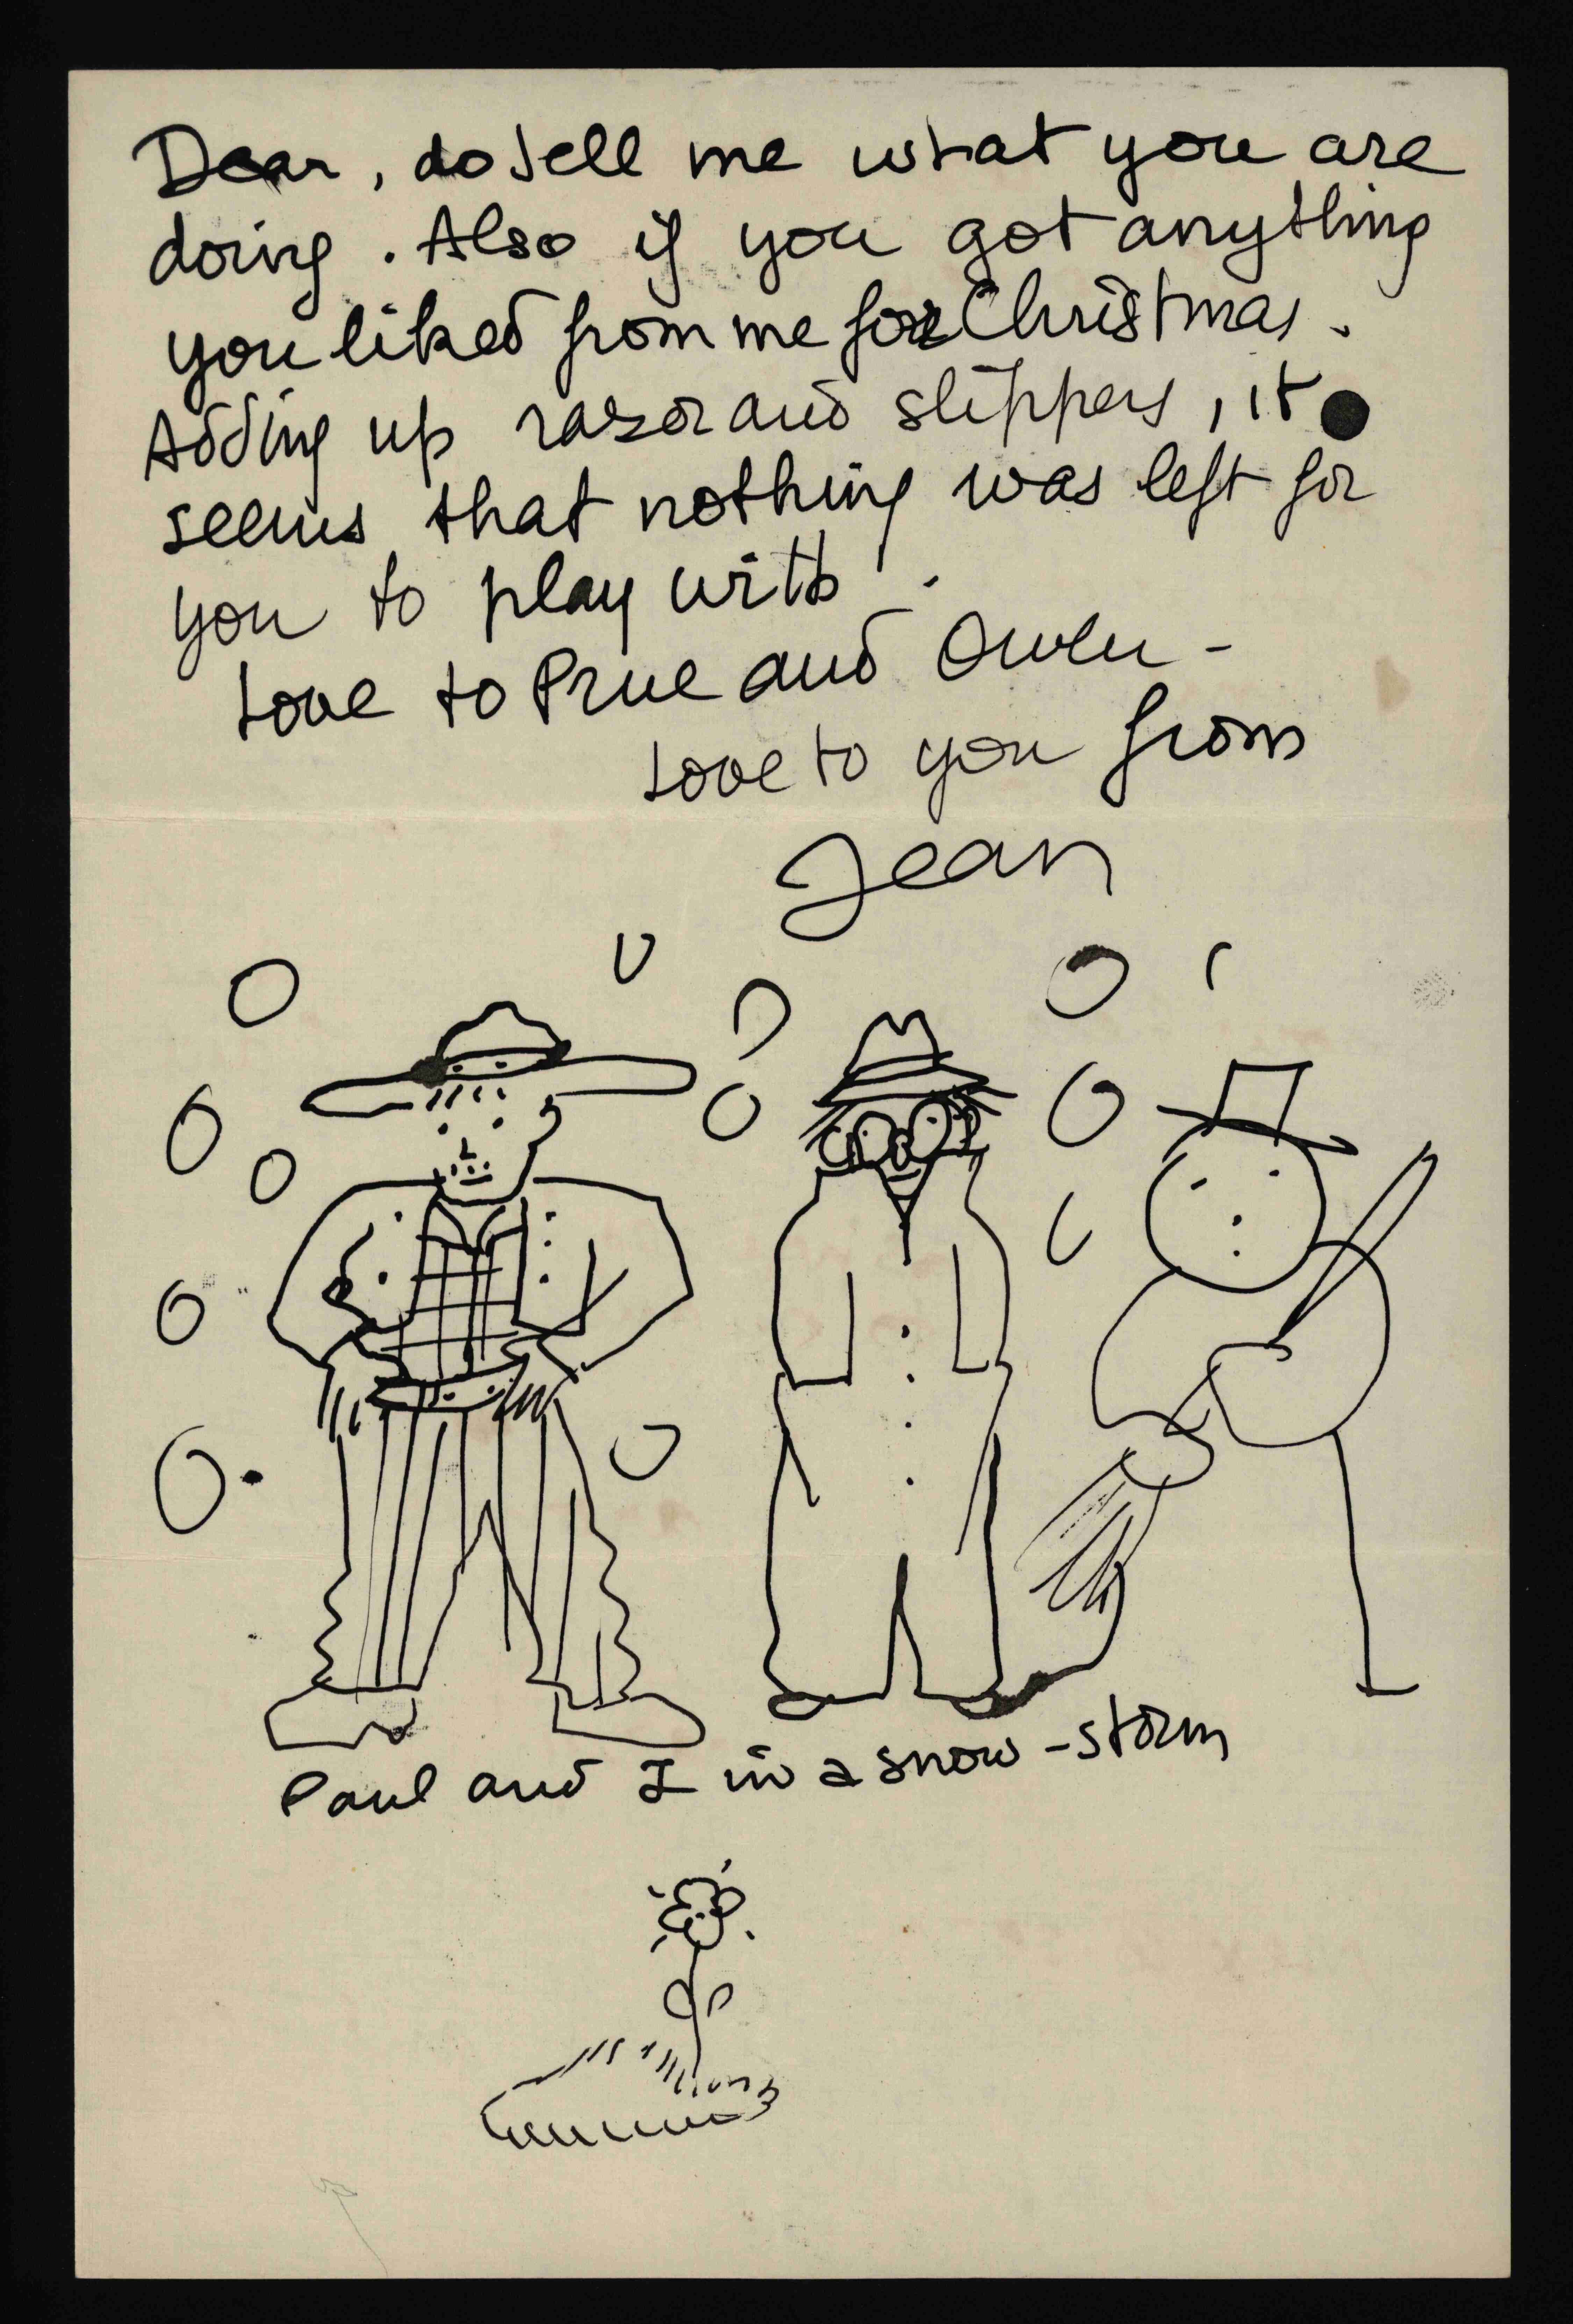 Dear, do tell me what you are
doing. Also if you got anything
you liked from me for Christmas.
Adding up razor and slippers, it
seems that nothing was left for
you to play with.
Love to Prue and Owen -
Love to you from
Jean
Paul and I in a snow-storm